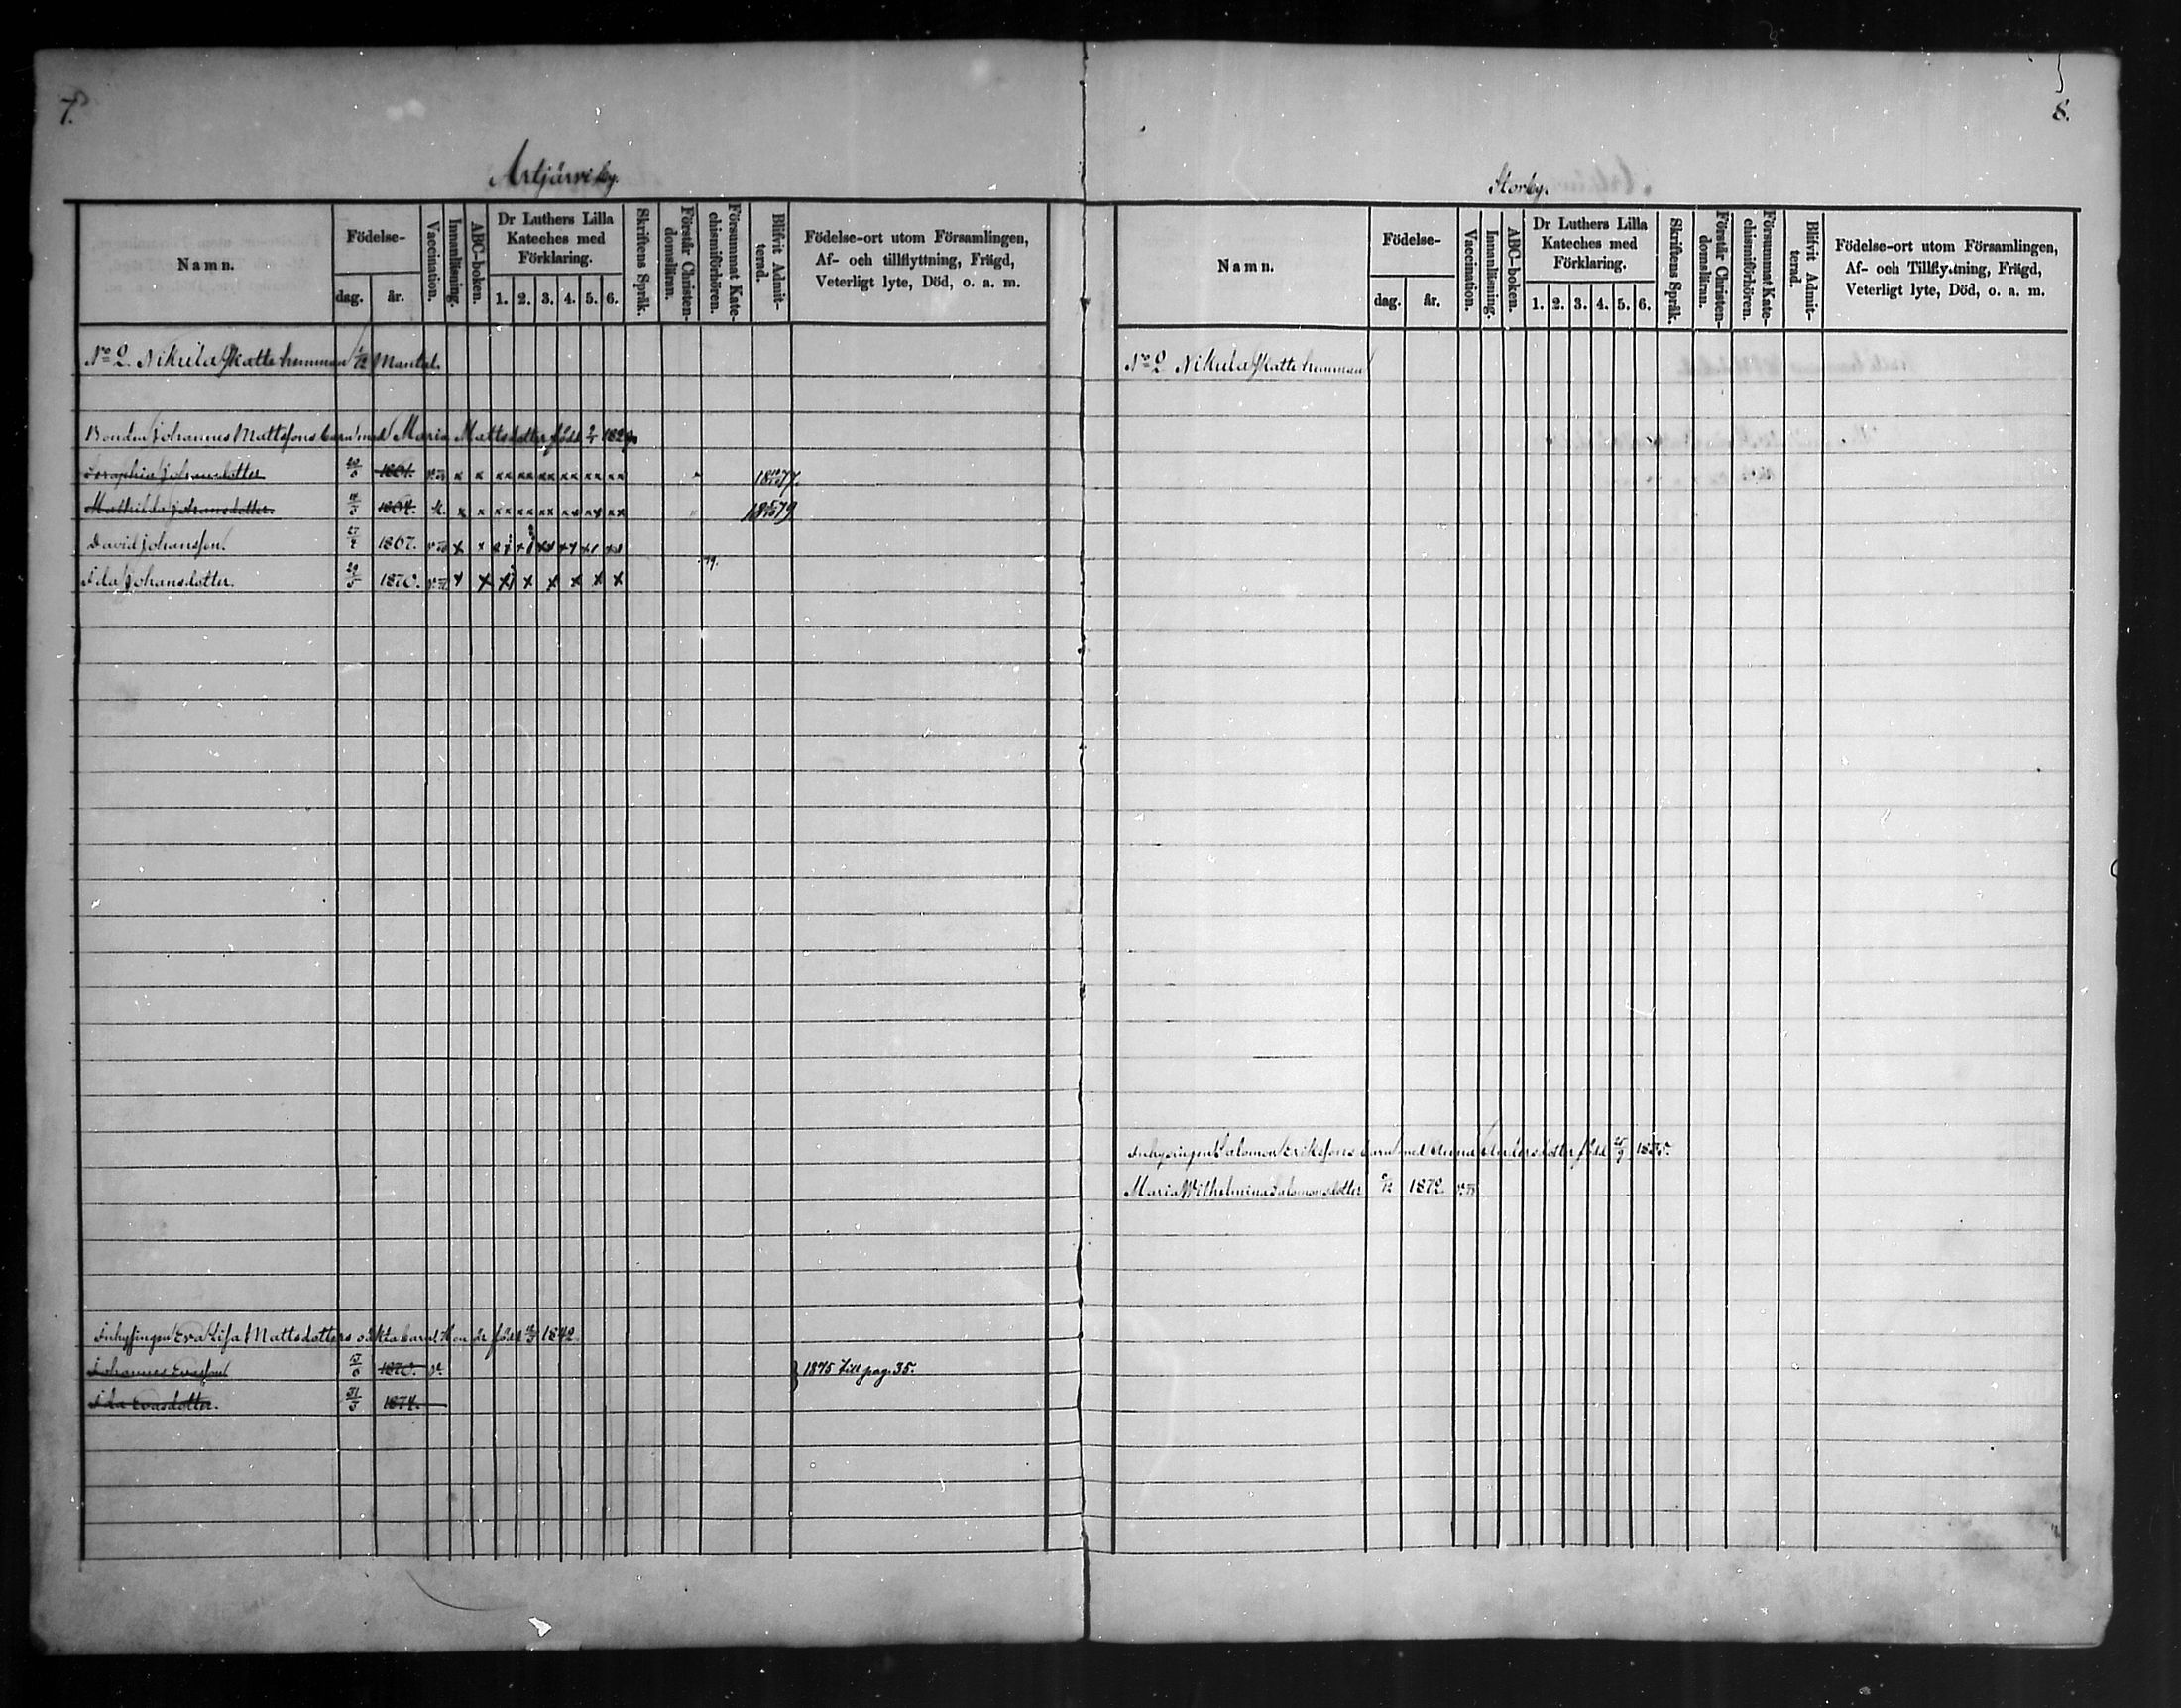 7.
Artjärvi by.
Namn.
Födelse-
dag.
år.
Vaccination.
Innanläsning.
ABC-boken.
Dr Luthers Lilla
Kateches med
Förklaring.
1. 2. 3. 4. 5. 6.
Skriftens Språk.
Förstår Christen-
domsläran.
Försummat Kate-
chismiförhören.
Blifvit Admit-
terad.
Födelse-ort utom Församlingen,
Af- och tillflyttning, Frägd,
Veterligt lyte, Död, o. a. m.
No 2. Nikula Skatte hemman Mantal.
Bonden Johannes Mattssons barn med Maria Mattsdotter född
Johansdotter 1861. x x xx xx xx xx xx xx 1877.
Mathilda Johansdotter. 1864. x x xx xx xx xx xx xx 1879
David Johansson. 1867. x x
Ida Johansdotter. 29/5 1870. x x x x x x x
79.
Inhysingen Eva Lisa Mattsdotters oäkta barn. Hon är född 1842
Johannes Evasson 1870. 1875 till pag. 35.
Ida Evasdotter. 31/5 1874.
8.
Storby.
Namn.
Födelse-
dag.
år.
Vaccination.
Innanläsning.
ABC-boken.
Dr Luthers Lilla
Kateches med
Förklaring.
1. 2. 3. 4. 5. 6.
Skriftens Språk.
Förstår Christen-
domsläran.
Försummat Kate-
chismiförhören.
Blifvit Admit-
terad.
Födelse-ort utom Församlingen,
Af- och Tillflyttning, Frägd,
Veterligt lyte, Död, o. a. m.
No 2 Nikula Skatte hemman
Inhysingen Salomon Erikssons barn med Anna Andersdotter född 1835.
Maria Wilhelmina Salomonsdotter 1872